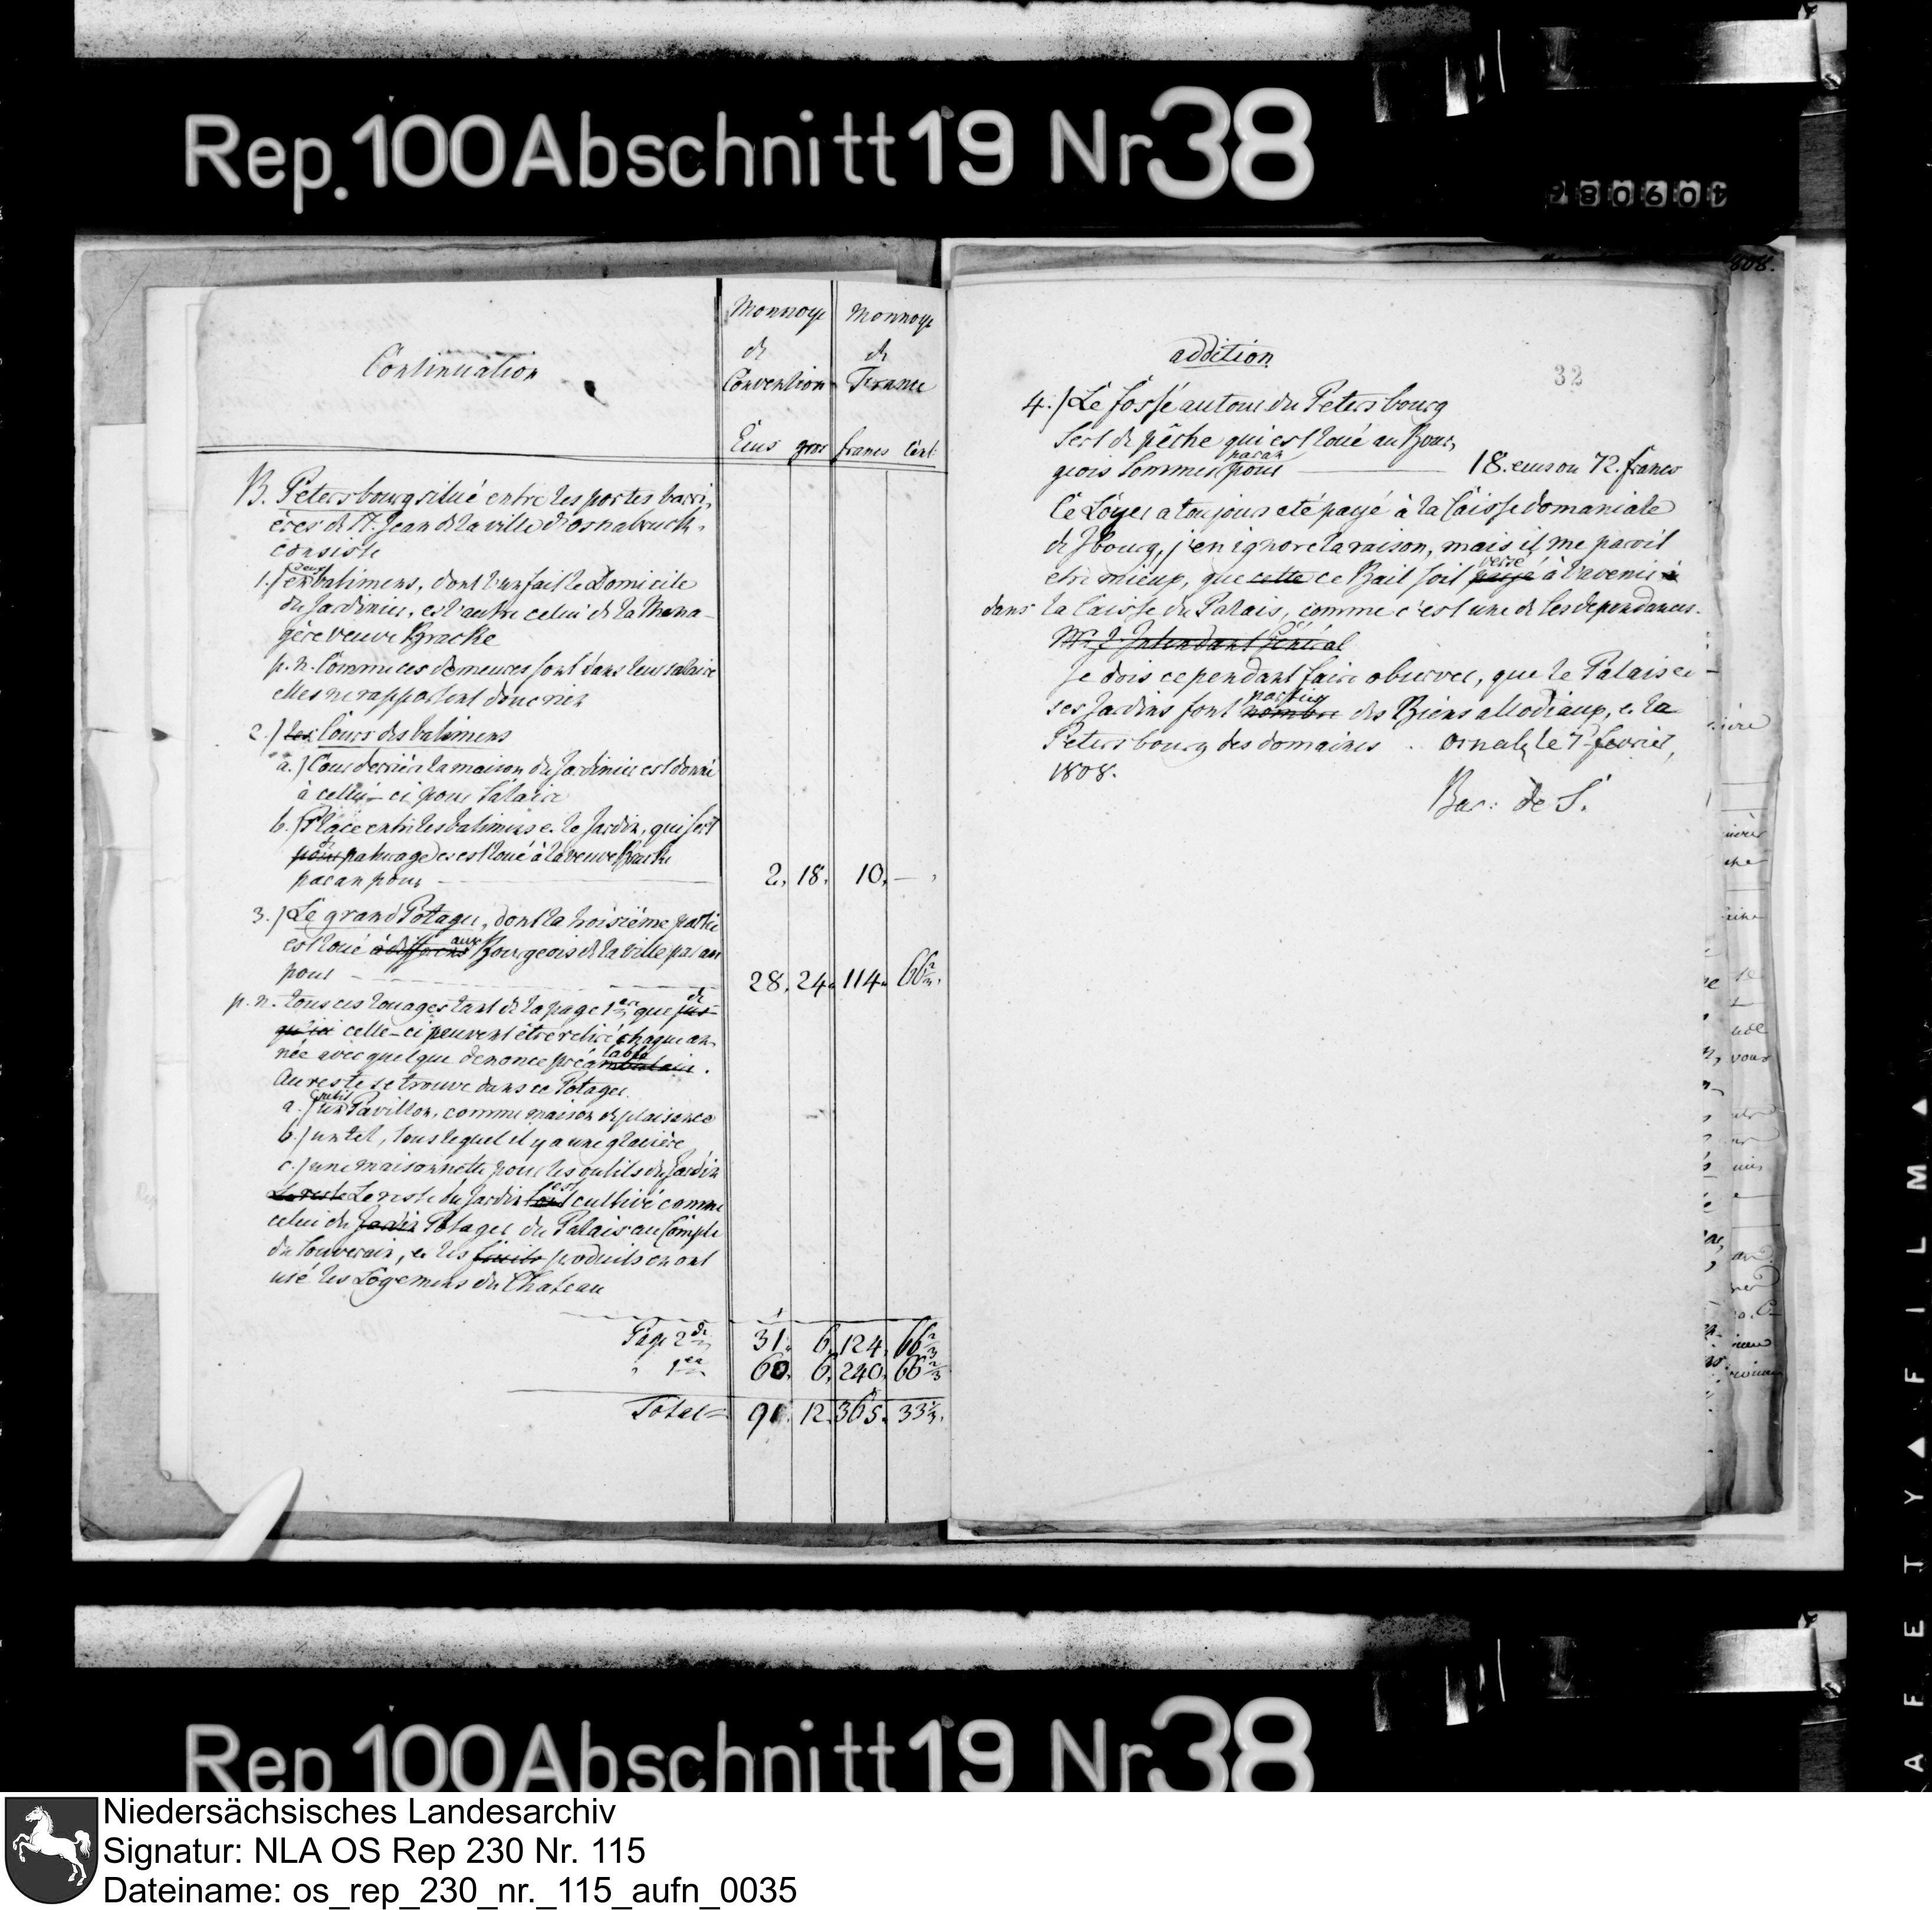 Rep. 100 Abschnitt 19 Nr 38
Continuation
Monnoye de Convention
Monnoye de France
Ecus gros francs Cent:
B. Petersbourg situé entre les portes barri,
ères de St. Jean de la ville d'Osnabruck,
consiste
1.) deux batimens, dont l'un fait le Domicile
du Jardinier, et l'autre celui de la Mena-
gère veuve Bracke
p. n. Comme ces demeures sont dans leur salaire
elles ne rapportent donc rien
2.) les Cours des batimens
a.) Cour derrière la maison du Jardinier est donné
à celui-ci pour Salaire
b.) Place entre les batimens e. le Jardin, qui sert
pour de paturage et est loué à la veuve Bracke
par an pour 2, 18, 10, —
3.) Le grand Potager, dont la troisième partie
est loué à differens aux Bourgeois de la ville par an
pour 28, 24, 114, 66 2/3.
p. n. tous ces louages tant de la page 1ere que de jus-
qu'ici celle-ci peuvent être retiré chaque an,
née avec quelque denonce préalable.
Au reste se trouve dans ce Potager
a.) un petit Pavillon, comme maison de plaisance
b.) un tel, sous lequel il y a une glacière
c.) une maisonnette pour les outils du Jardin
Le reste Le reste du Jardin est cultivé comme
celui du Jardin Potager du Palais au Compte
du Souverain, e. les fruits produits en ont
usé les Logemens du Chateau
Page 2de 31. 6. 124. 66 2/3
" 1ere 60. 6. 240. 66 2/3
Total = 91. 12. 365. 33 1/3.
808.
32
addition
4.) Le fossé autour du Petersbourg
sert de pêche qui est loué au Bour,
geois Sommer par an pour — 18. ecus ou 72. francs
Ce Loyer a toujours eté payé à la Caisse domaniale
de Jbourg, j'en ignore la raison, mais il me paroit
etre mieux, que cette ce Bail soit payé versé à l'avenir à
dans la Caisse du Palais, comme c'est une de ses dependances.
Mr. l'Intendant Général
Je dois cependant faire observer, que le Palais e.
ses Jardins font nombre parties des Biens allodiaux, e. la
Petersbourg des domaines. Osnab, le 7 fevrier,
1808.
Bar: de S.
Rep 100 Abschnitt 19 Nr 38
SAFETY FILM
Niedersächsisches Landesarchiv
Signatur: NLA OS Rep 230 Nr. 115
Dateiname: os_rep_230_nr._115_aufn_0035